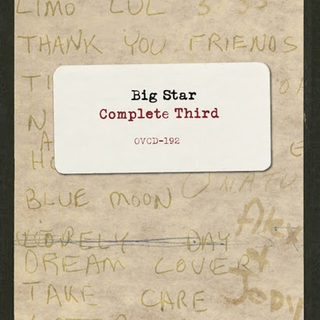 LIMO LUL 3:33
THANK YOU FRIENDS
Big Star
Complete Third
OVCD-192
BLUE MOON
LOVELY DAY
DREAM LOVER
Alex
TAKE CARE
Jody